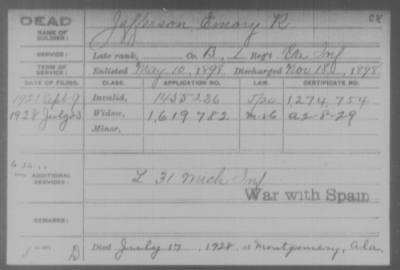 DEAD
NAME OF SOLDIER: Jefferson, Emory R
SERVICE: Late rank, Co. B, 1 Reg't Inf
TERM OF SERVICE: Enlisted May 10, 1898, Discharged Nov 18, 1898
DATE OF FILING. CLASS. APPLICATION NO. LAW. CERTIFICATE NO.
1921 Sept 9 Invalid, 1455236 Spa 1,274,754
1928 July 23 Widow, 1,619,782 a2-8-29
Minor,
ADDITIONAL SERVICES: L 31 Mich Inf
War with Spain
REMARKS:
Died July 17, 1928, at Montgomery, Ala.